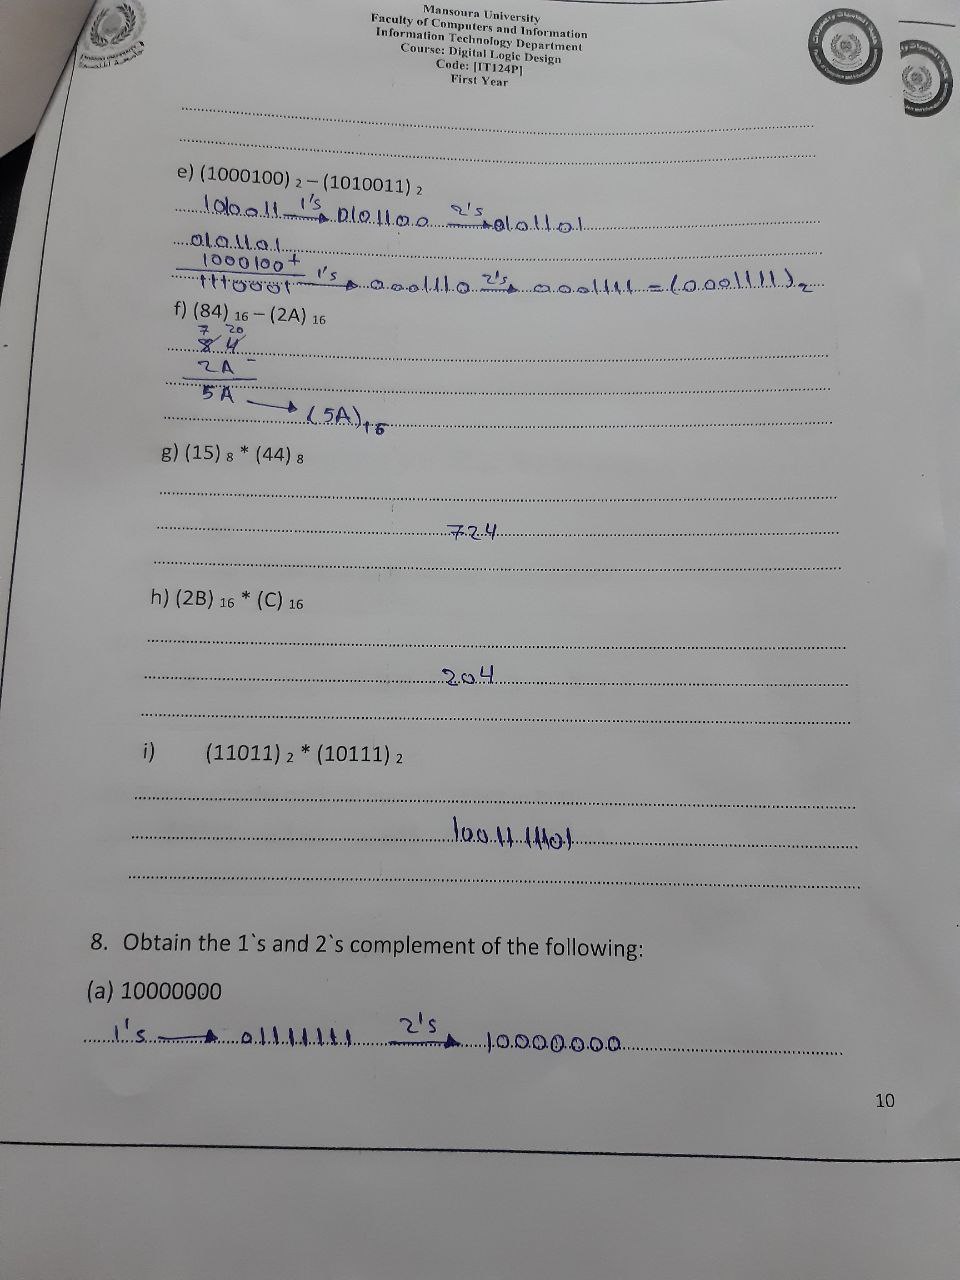 Mansoura University
Faculty of Computers and Information
Information Technology Department
Course: Digital Logic Design
Code: [IT124P]
First Year
e) (1000100) 2 – (1010011) 2
1's 0101100 2's 0101101
0101101
1000100 +
1110001 1's 0001110 2's 0001111 = (0001111)2
f) (84) 16 – (2A) 16
7 20
8 4
2A -
5A
(5A)16
g) (15) 8 * (44) 8
724
h) (2B) 16 * (C) 16
204
i) (11011) 2 * (10111) 2
1001101101
8. Obtain the 1`s and 2`s complement of the following:
(a) 10000000
1's 01111111 2's 10000000
10